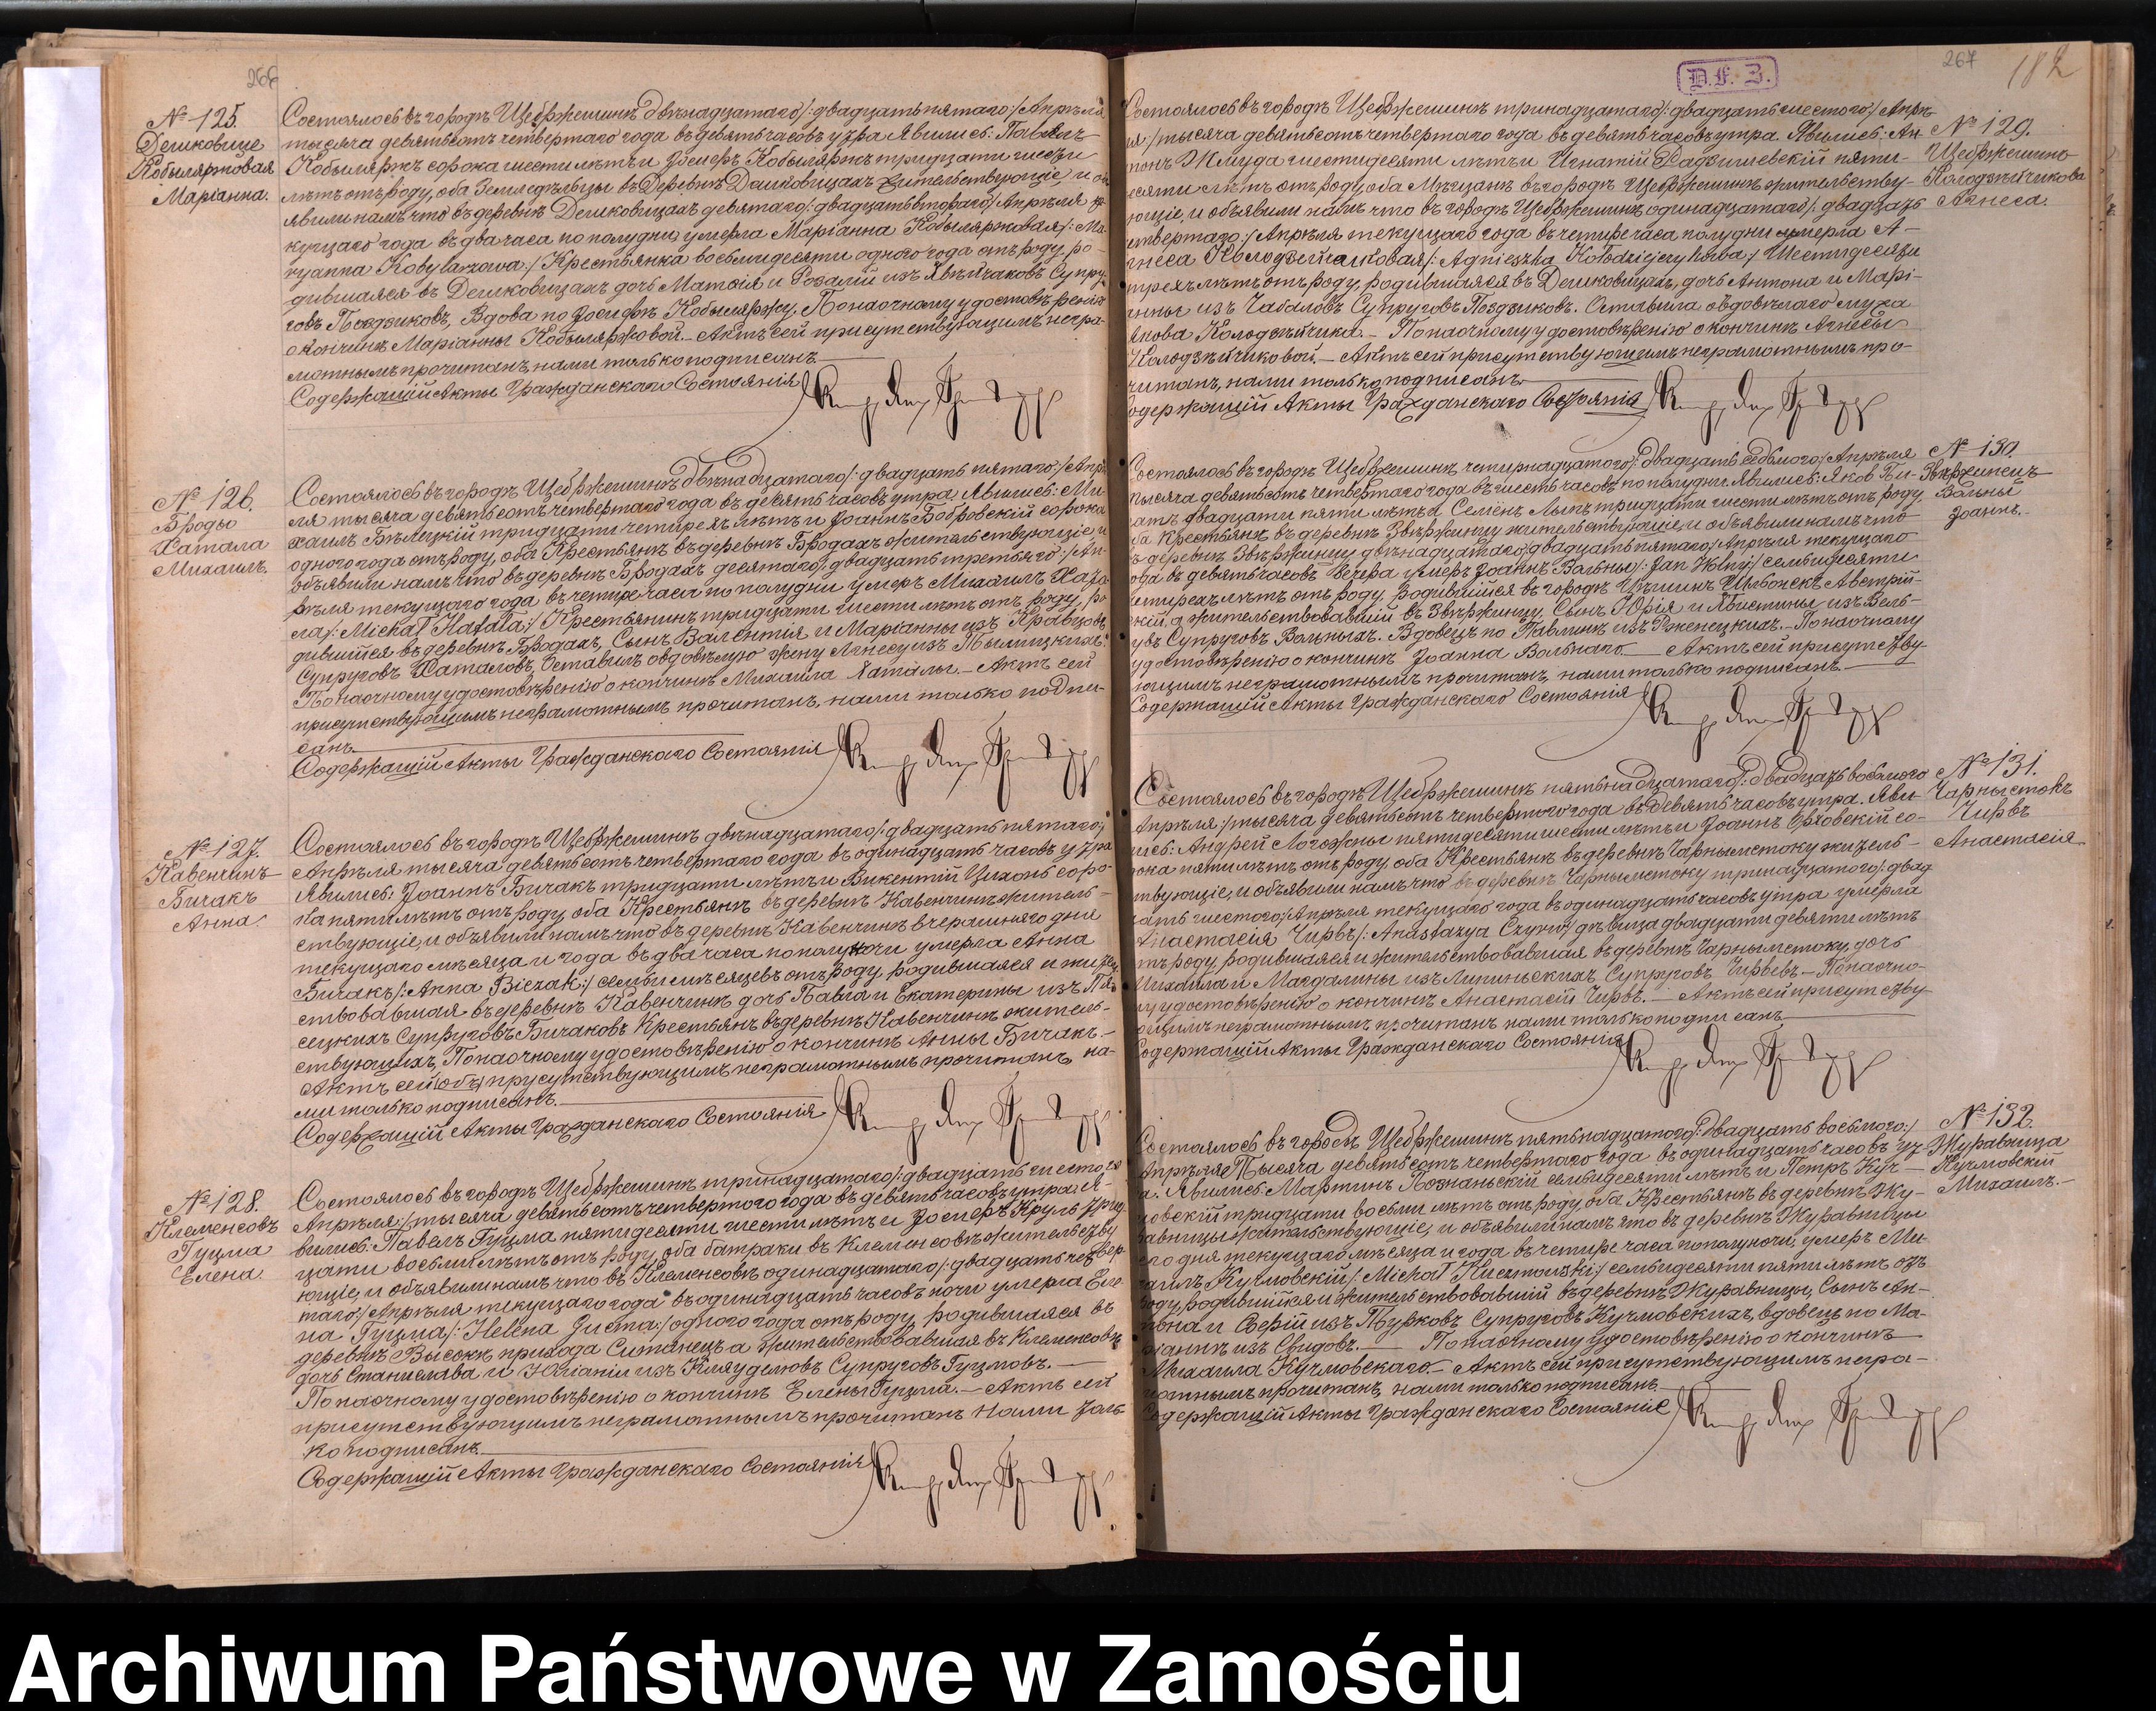 266
№ 125.
Дешковице
Кобыляржовая
Маріанна.
Состоялось въ городѣ Щебржешинѣ двѣнадцатаго /: двадцать пятаго :/ Апрѣля
тысяча девятьсотъ четвертаго года въ девять часовъ утра. Явились: Павелъ
Кобыляржъ сорока шести лѣтъ и Іосифъ Кобыляржъ тридцати шести
лѣтъ отъ роду, оба Земледѣльцы въ Деревнѣ Дешковицахъ жительствующіе, и об
явили намъ что въ деревнѣ Дешковицахъ девятаго /: двадцать втораго :/ Апрѣля те
кущаго года въ два часа по полудни умерла Маріанна Кобыляржовая /: Ma
ryanna Kobylarzowa :/ Крестьянка восьмидесяти одного года отъ роду, ро-
дившаяся въ Дешковицахъ дочь Матвія и Розаліи изъ Супру-
говъ Поздзиковъ, Вдова по Іосифѣ Кобыляржу. По наочному удостовѣренію
о кончинѣ Маріанны Кобыляржовой. — Актъ сей присутствующимъ негра-
мотнымъ прочитанъ, нами только подписанъ.
Содержащій Акты Гражданскаго Состоянія
№ 126.
Броды
Хатала
Михаилъ.
Состоялось въ городѣ Щебржешинѣ двѣнадцатаго /: двадцать пятаго :/ Апрѣ
ля тысяча девятьсотъ четвертаго года въ девять часовъ утра. Явились: Ми-
хаилъ Бѣлецкій тридцати четырехъ лѣтъ и Іоаннъ Бобровскій сорока
одного года отъ роду, оба Крестьянѣ въ деревнѣ Бродахъ жительствующіе, и
объявили намъ что въ деревнѣ Бродахъ десятаго /: двадцать третьяго :/ Ап-
рѣля текущаго года въ четыре часа по полудни умеръ Михаилъ Хата
ла /: Michał Hatala :/ Крестьянинъ тридцати шести лѣтъ отъ роду, ро
дившійся въ деревнѣ Бродахъ, Сынъ Валентія и Маріанны изъ Кравцовъ
Супруговъ Хаталовъ. Оставилъ овдовѣлую жену Агнесу изъ
По наочному удостовѣренію о кончинѣ Михаила Хаталы. — Актъ сей
присутствующимъ неграмотнымъ прочитанъ, нами только подпи-
санъ.
Содержащій Акты Гражданскаго Состоянія
№ 127.
Кавенчинъ
Бичакъ
Анна.
Состоялось въ городѣ Щебржешинѣ двѣнадцатаго /: двадцать пятаго :/
Апрѣля тысяча девятьсотъ четвертаго года въ одинадцать часовъ утра
Явились: Іоаннъ Бичакъ тридцати лѣтъ и Викентій Цихонь соро-
ка пяти лѣтъ отъ роду, оба Крестьянѣ въ деревнѣ Кавенчинѣ житель-
ствующіе, и объявили намъ что въ деревнѣ Кавенчинѣ вчерашняго дня
текущаго мѣсяца и года въ два часа по полуночи умерла Анна
Бичакъ /: Anna Biczak :/ семи мѣсяцевъ отъ роду, родившаяся и житель
ствовавшая въ деревнѣ Кавенчинѣ дочь Павла и Екатерины изъ
сецкихъ Супруговъ Бичаковъ Крестьянъ въ деревнѣ Кавенчинѣ житель-
ствующихъ. По наочному удостовѣренію о кончинѣ Анны Бичакъ. —
Актъ сей (объ) присутствующимъ неграмотнымъ прочитанъ, на-
ми только подписанъ.
Содержащій Акты Гражданскаго Состоянія
№ 128.
Клеменсовъ
Гуцма
Елена.
Состоялось въ городѣ Щебржешинѣ тринадцатаго /: двадцать шестаго
Апрѣля :/ тысяча девятьсотъ четвертаго года въ девять часовъ утра. Я-
вились: Павелъ Гуцма пятидесяти шести лѣтъ и Іосифъ Круль трид
цати восьми лѣтъ отъ роду, оба батраки въ Клеменсовѣ жительству
ющіе, и объявили намъ что въ Клеменсовѣ одинадцатаго /: двадцать четвер
таго :/ Апрѣля текущаго года въ одинадцать часовъ ночи умерла Еле
на Гуцма /: Helena Gucma :/ одного года отъ роду, родившаяся въ
деревнѣ Высоке прихода Ситанецъ а жительствовавшая въ Клеменсовѣ
дочь Станислава и Юліаніи изъ Супруговъ Гуцмовъ. —
По наочному удостовѣренію о кончинѣ Елены Гуцма. — Актъ сей
присутствующимъ неграмотнымъ прочитанъ нами толь
ко подписанъ.
Содержащій Акты Гражданскаго Состоянія
D.F.Z.
267
182
№ 129.
Щебржешинъ
Колодзѣйчикова
Агнеса.
Состоялось въ городѣ Щебржешинѣ тринадцатаго /: двадцать шестого :/ Апрѣ
ля :/ тысяча девятьсотъ четвертаго года въ девять часовъ утра. Явились: Ан
тонъ Жмуда шестидесяти лѣтъ и Игнатій Радзишевскій пяти-
десяти лѣтъ отъ роду, оба Мѣщанѣ въ городѣ Щебржешинѣ жительству-
ющіе, и объявили намъ что въ городѣ Щебржешинѣ одинадцатаго /: двадцать
четвертаго :/ Апрѣля текущаго года въ четыре часа полудни умерла А-
гнеса Колодзейчиковая /: Agnieszka Kołodziejczykowa :/ Шестидесяти
трехъ лѣтъ отъ роду, родившаяся въ Дешковицахъ, дочь Антона и Марі-
анны изъ Чабаловъ Супруговъ Поздзиковъ. Оставила овдовѣлаго мужа
Якова Колодзѣйчика. — По наочному удостовѣренію о кончинѣ Агнесы
Колодзѣйчиковой. — Актъ сей присутствующимъ неграмотнымъ про-
читанъ, нами только подписанъ.
Содержащій Акты Гражданскаго Состоянія
№ 130.
Звѣржинецъ
Вольны
Іоаннъ.
Состоялось въ городѣ Щебржешинѣ четырнадцатаго /: двадцать седьмого :/ Апрѣля
тысяча девятьсотъ четвертаго года въ шесть часовъ по полудни. Явились: Яковъ
двадцати пяти лѣтъ и Семенъ тридцати шести лѣтъ отъ роду,
оба Крестьянѣ въ деревнѣ Звѣржинцу жительствующіе, и объявили намъ что
въ деревнѣ Звѣржинцу двѣнадцатаго /: двадцать пятаго :/ Апрѣля текущаго
года въ девять часовъ вечера умеръ Іоаннъ Вольны /: Jan Wolny :/ семьдесяти
четырехъ лѣтъ отъ роду, родившійся въ городѣ Австрій-
скій, а жительствовавшій въ Звѣржинцу, Сынъ Юрія и изъ
Супруговъ Вольныхъ. Вдовецъ по Павлинѣ изъ По наочному
удостовѣренію о кончинѣ Іоанна Вольнаго. — Актъ сей присутству-
ющимъ неграмотнымъ прочитанъ, нами только подписанъ.
Содержащій Акты Гражданскаго Состоянія
№ 131.
Чарныстокъ
Чирвъ
Анастасія
Состоялось въ городѣ Щебржешинѣ пятьнадцатаго /: двадцать восьмого
Апрѣля :/ тысяча девятьсотъ четвертого года въ девять часовъ утра. Яви-
лись: Андрей пятидесяти шести лѣтъ и Іоаннъ Орловскій со-
рока пяти лѣтъ отъ роду, оба Крестьянѣ въ деревнѣ Чарнымстоку житель-
ствующіе, и объявили намъ что въ деревнѣ Чарнымстоку тринадцатаго /: двад
цать шестого :/ Апрѣля текущаго года въ одинадцать часовъ утра умерла
Анастасія Чирвъ /: Anastazya Czyrw :/ дѣвица двадцати девяти лѣтъ
отъ роду, родившаяся и жительствовавшая въ деревнѣ Чарнымстоку, дочь
Михаила и Магдалины изъ Липиньскихъ Супруговъ Чирвевъ. — По наочно-
му удостовѣренію о кончинѣ Анастасіи Чирвъ. — Актъ сей присутству-
ющимъ неграмотнымъ прочитанъ нами только подписанъ
Содержащій Акты Гражданскаго Состоянія
№ 132.
Журавница
Кучмовскій
Михаилъ. —
Состоялось въ городѣ Щебржешинѣ пятьнадцатаго /: двадцать восьмого :/
Апрѣля Тысяча девятьсотъ четвертаго года въ одинадцать часовъ ут
ра. Явились: Мартинъ Познаньскій семьдесяти лѣтъ и Петръ Куч-
мовскій тридцати восьми лѣтъ отъ роду, оба Крестьянѣ въ деревнѣ Жу-
равницы жительствующіе, и объявили намъ что въ деревнѣ Журавницы
сего дня текущаго мѣсяца и года въ четыре часа по полуночи, умеръ Ми-
хаилъ Кучмовскій /: Michał Kuczmowski :/ семьдесяти пяти лѣтъ отъ
роду, родившійся и жительствовавшій въ деревнѣ Журавницы, Сынъ Ан-
тона и Софіи изъ Турковъ Супруговъ Кучмовскихъ, вдовецъ по Ма-
ріаннѣ изъ Свидовъ. — По наочному удостовѣренію о кончинѣ
Михаила Кучмовскаго. — Актъ сей присутствующимъ негра-
мотнымъ прочитанъ, нами только подписанъ.
Содержащій Акты Гражданскаго Состоянія
Archiwum Państwowe w Zamościu